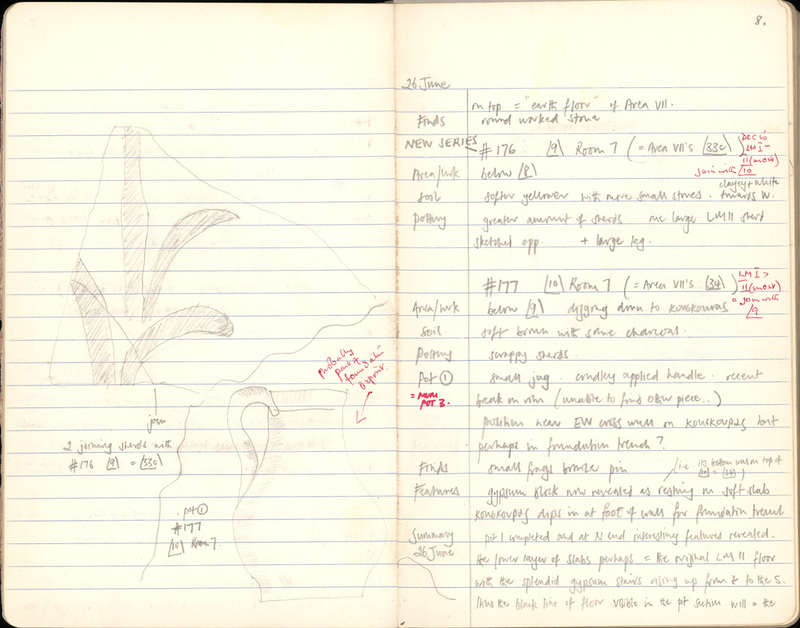 probably
part of
foundatn
Deposit.
join
2 joining sherds with
#176 [9] = [33c]
pot ①
#177
[10] Room 7.
8.
26 June
on top = "earth floor" of Area VII.
Finds round worked stone
NEW SERIES #176 [9] Room 7 (= Area VII's [33c])
LM I -
II (most)
join with [10]
Area/wk below [8]
clayey + white
soil softer yellower with more small stones. towards W.
pottery greater amount of sherds one large LM II sherd
sketched opp + large leg.
#177 [10] Room 7 (= Area VII's [34])
LM I >
II (most)
a join with
[9]
Area/wk below [9] digging down to kouskouras
soil soft brown with some charcoal.
pottery scrappy sherds.
Pot ① small jug. crudely applied handle. recent
= now
POT 3.
break on rim (unable to find other piece..)
position near EW cross wall on kouskouras but
perhaps in foundation trench?
Finds small frags bronze pin
(i.e. its bottom was on top of
Features gypsum block now revealed as resting on soft slab
kouskouras dips in at foot of wall for foundation trench
Summary pit 1 completed and at N end interesting features revealed.
26 June the lower layer of slabs perhaps = the original LM II floor
with the splendid gypsum stairs rising up from it to the S.
thus the black line of floor visible in the pit section will = the